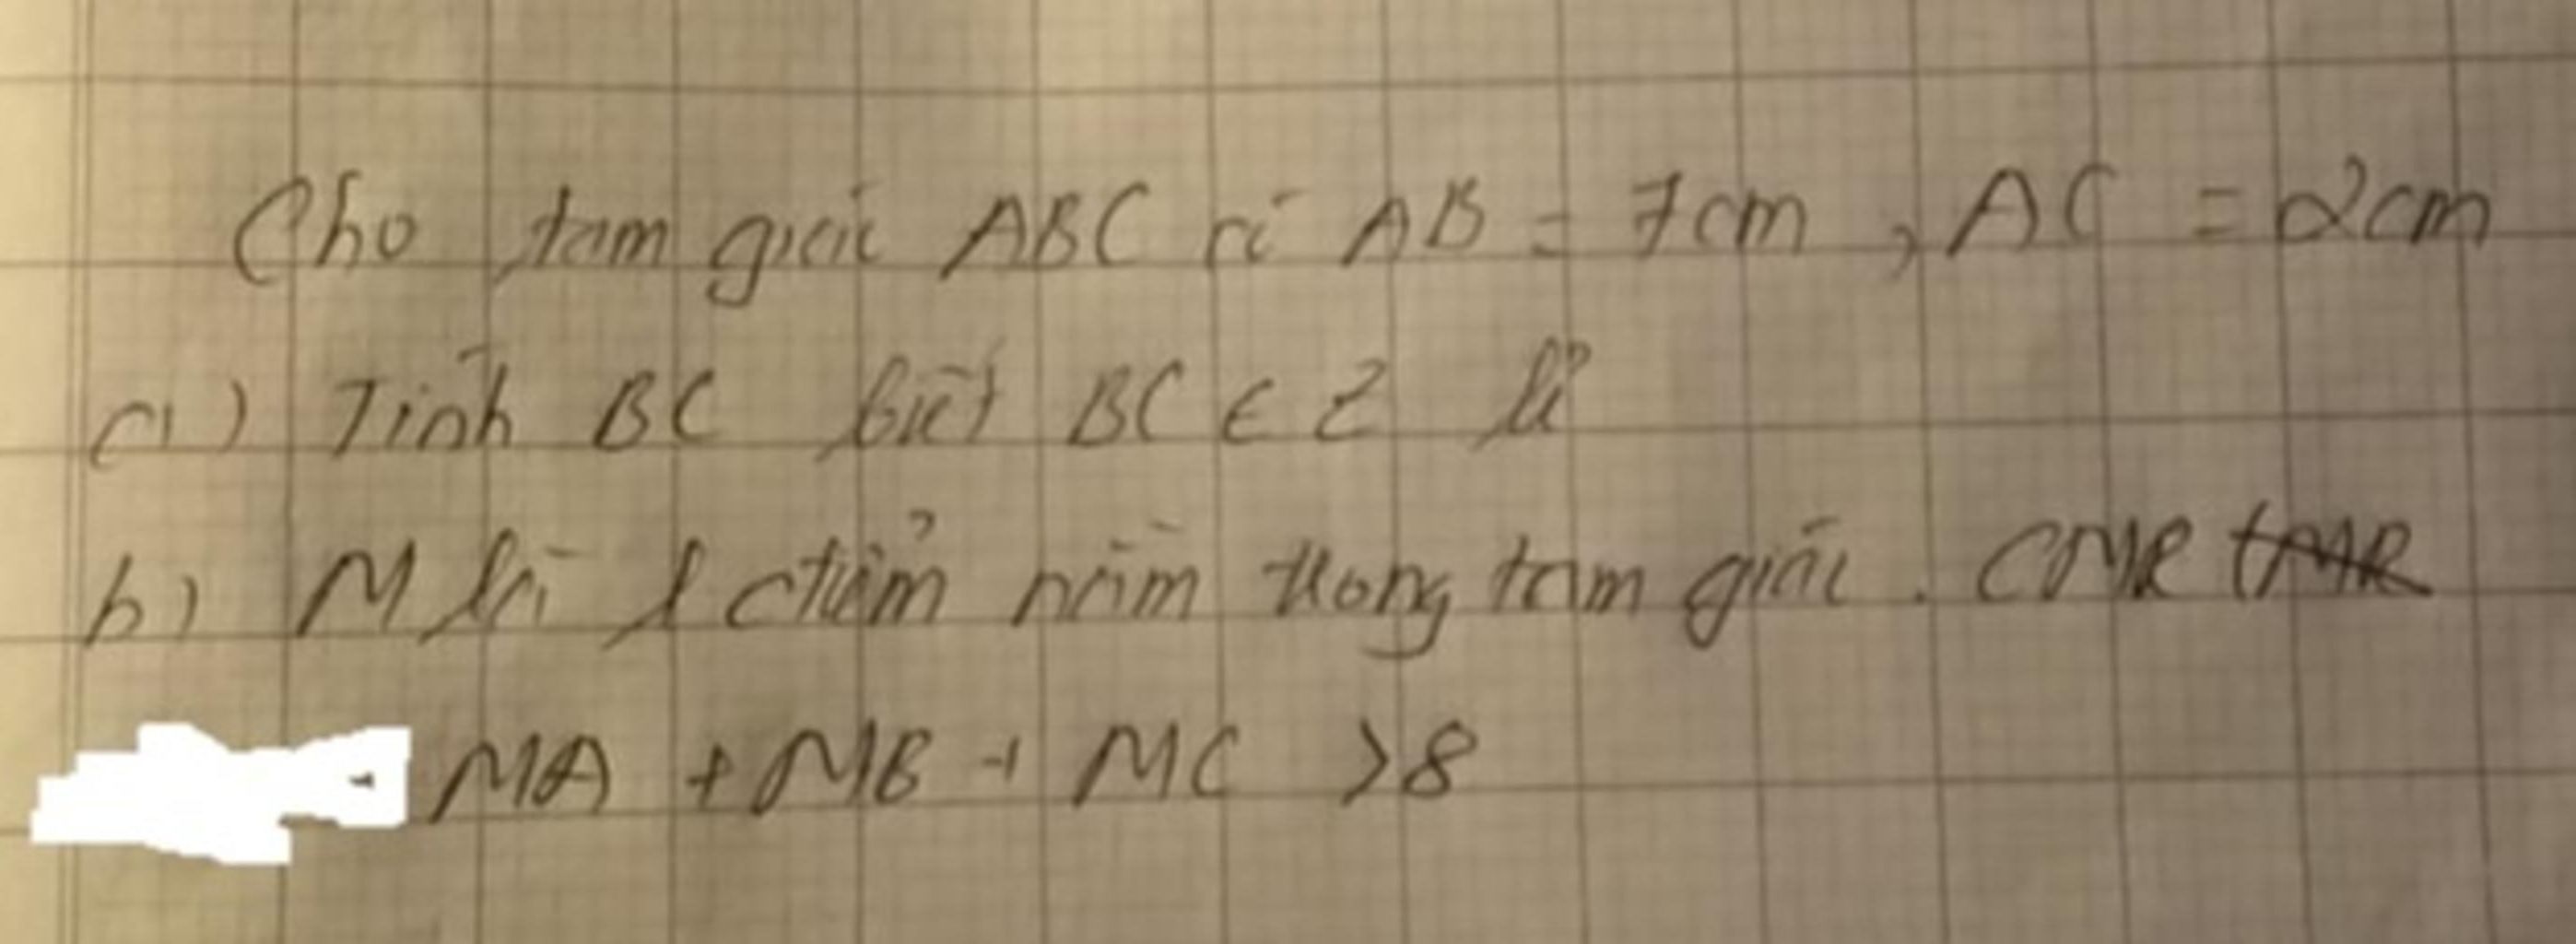 Cho tam giác ABC có AB = 7cm, AC = 2cm
a) Tính BC biết BC ∈ Z lẻ
b) M là 1 điểm nằm trong tam giác. CMR
MA + MB + MC > 8